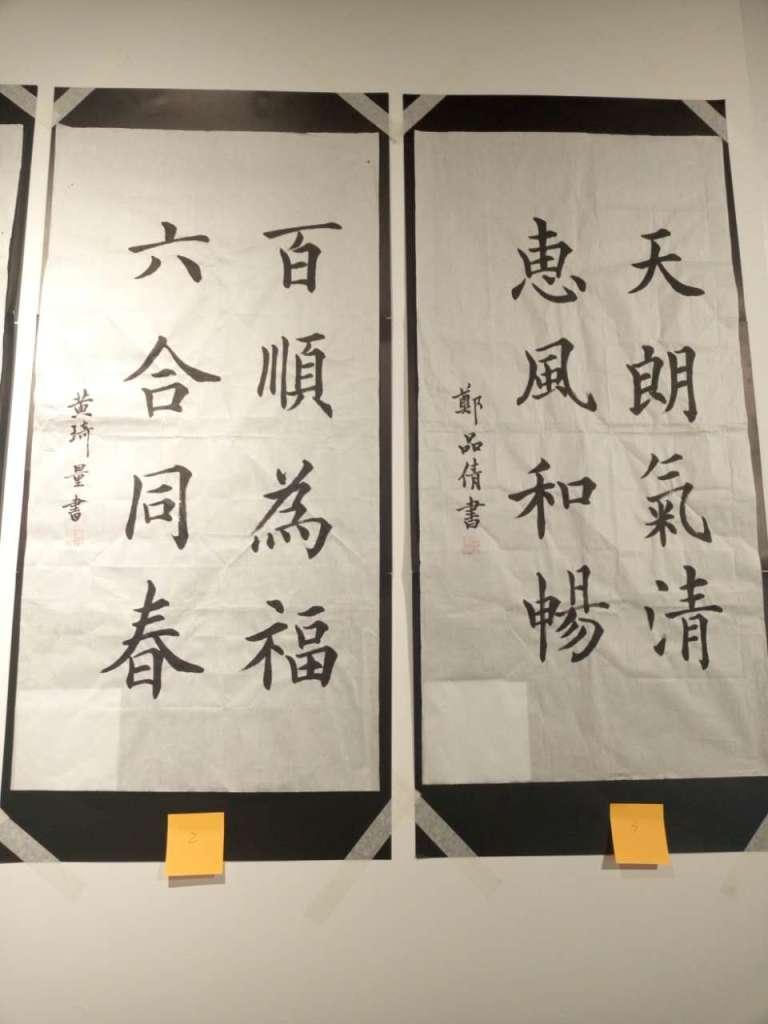 天朗氣清
恵風和暢
鄭品倩書
百順為福
六合同春
黄琦量書
2